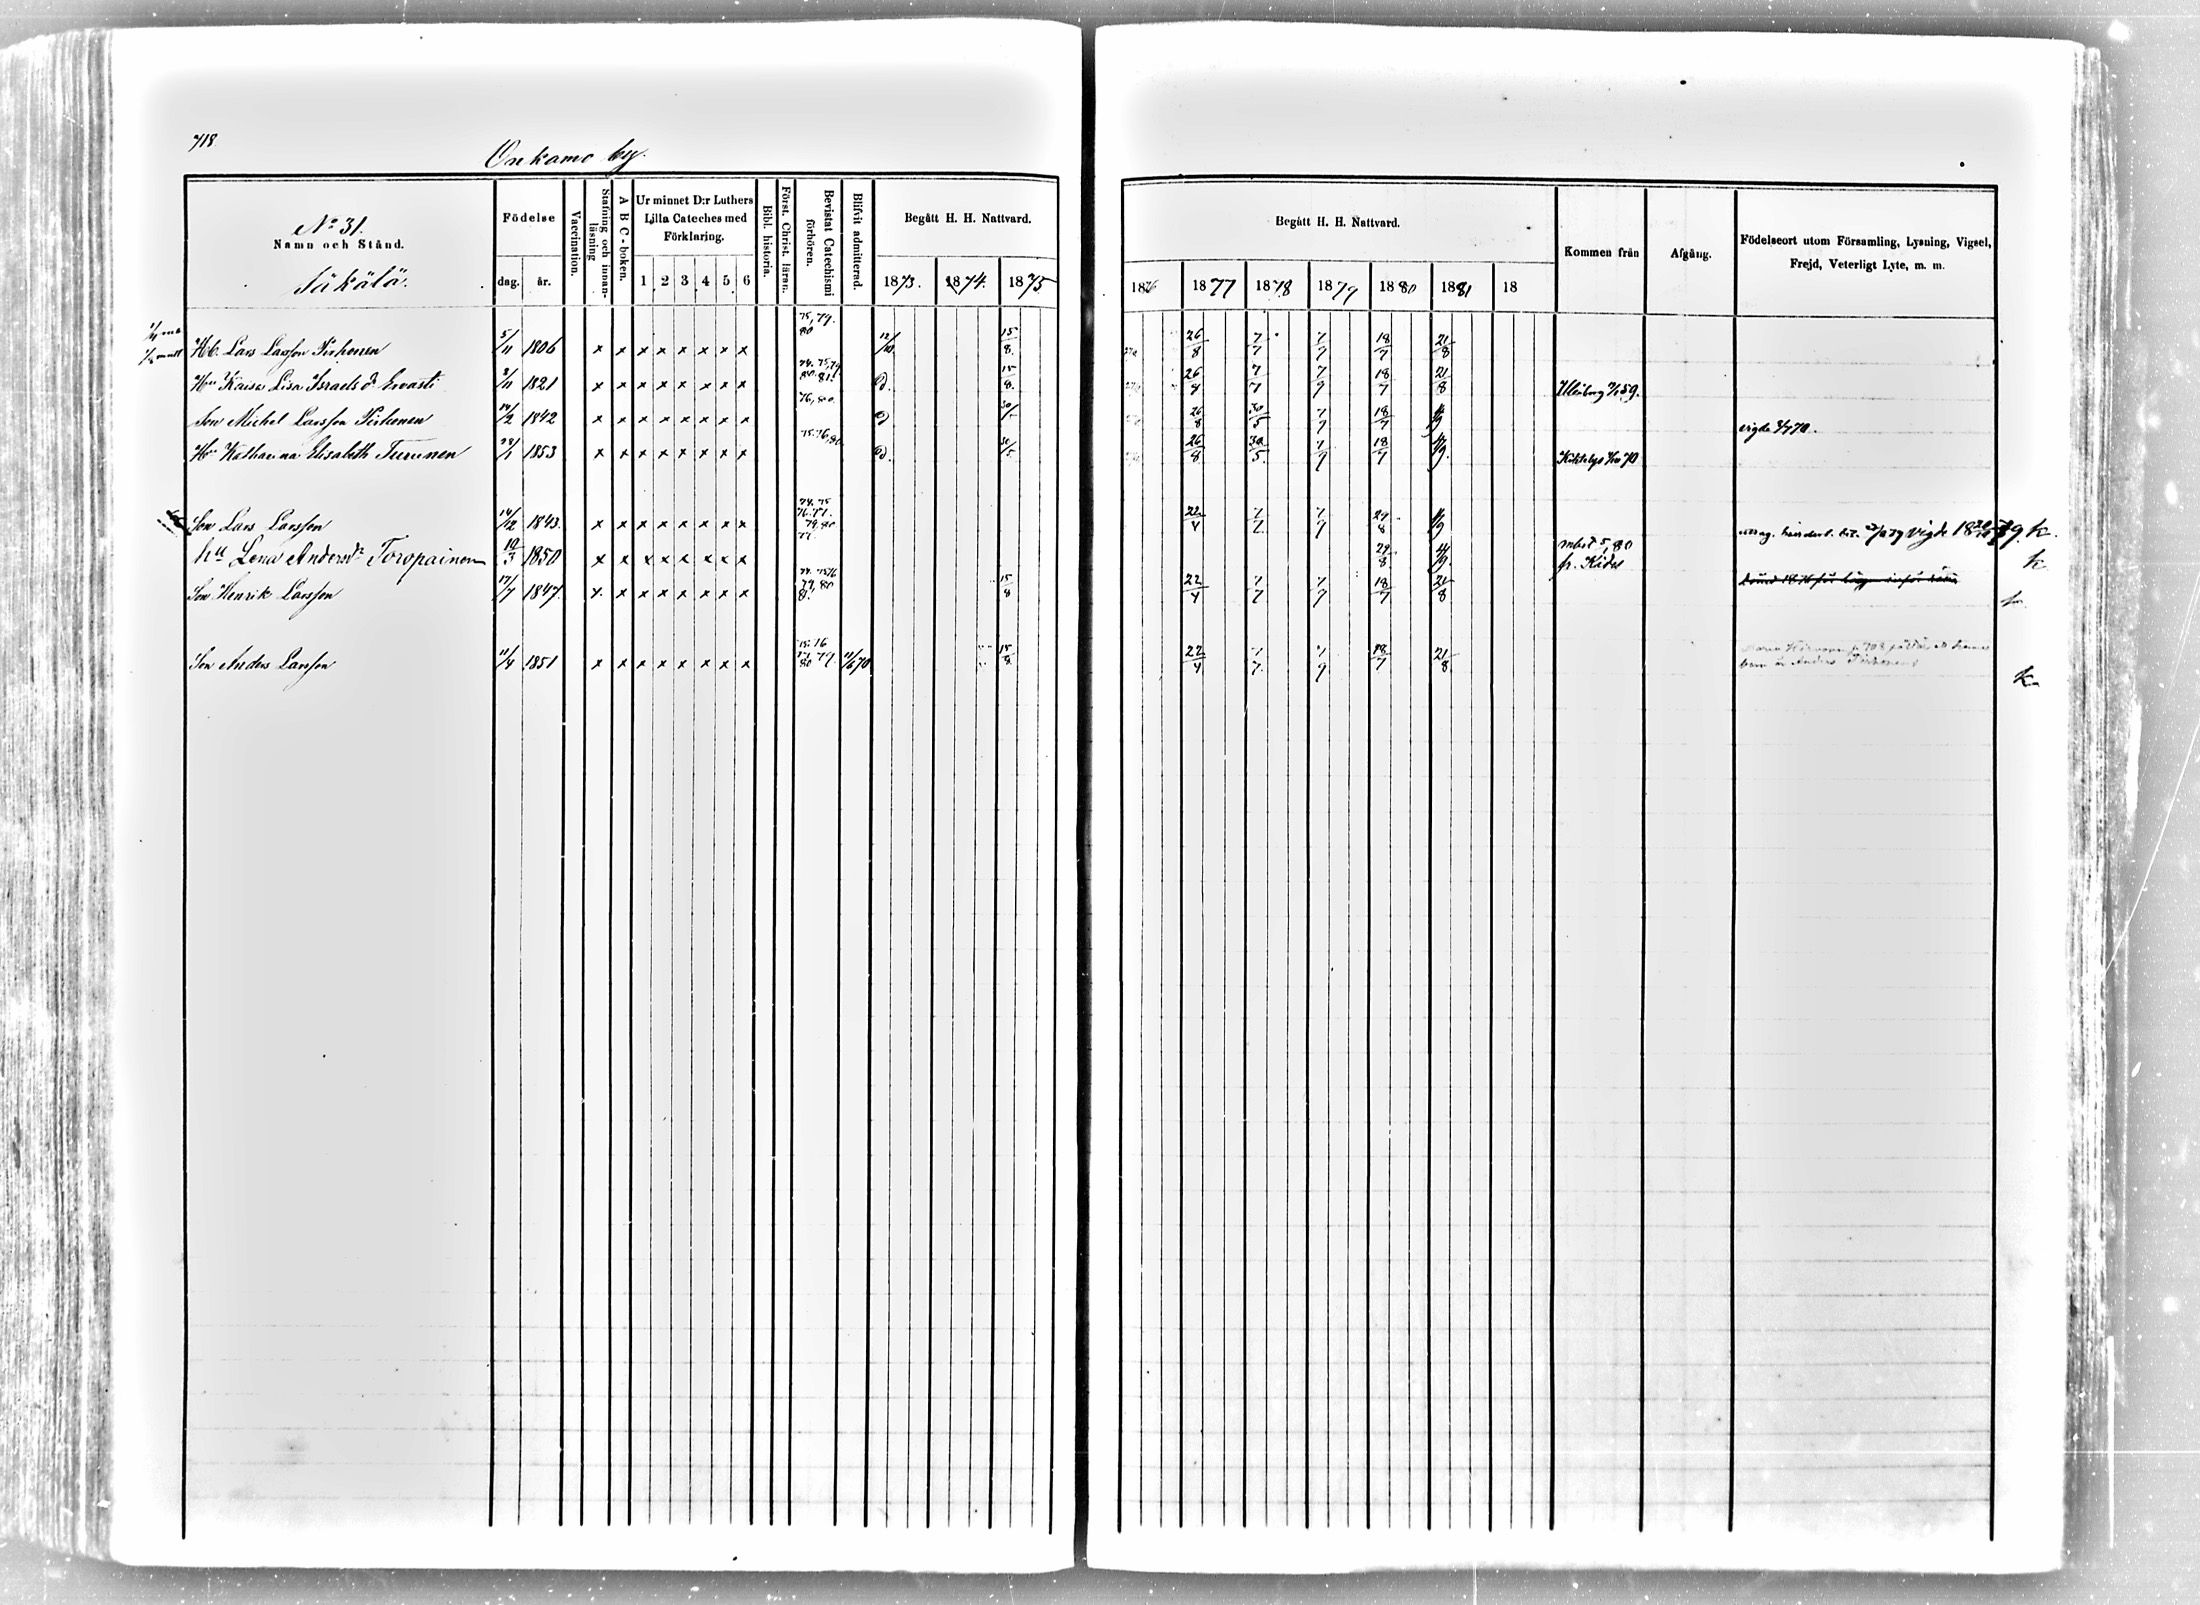 718
Onkamo by.
No 31.
Namn och Stånd.
Säkälä.
Födelse
dag. år.
Vaccination.
Stafning och innanläsning
A B C-boken.
Ur minnet D:r Luthers
Lilla Cateches med
Förklaring.
1 2 3 4 5 6
Bibl. historia.
Först. Christ. läran.
Bevistat Catechismi förhören.
Blifvit admitterad.
Begått H. H. Nattvard.
1873. 1874. 1875
Begått H. H. Nattvard.
1876 1877 1878 1879 1880 1881 18
Kommen från
Afgång.
Födelseort utom Församling, Lysning, Vigsel,
Frejd, Veterligt Lyte, m. m.
Hb. Lars Larsson Pirhonen 5/11 1806 x x x x x x x x 75, 79. 80 12/10. 15/8. 26/8 7/7 7/7 18/7 21/8
Hu Kaisa Lisa Israels dr Ervasti 1821 x x x x x x x x D. 15/8. 7/7 18/7 21/8 Uleåborg 59.
Son Michel Larsson Pirhonen 14/2 1842 x x x x x x x x 76, 80. D 26/8 30/5 7/7 18/7 vigde 70.
Hu Katharina Elisabeth Turunen 28/1 1853 x x x x x x x x 75. 76, 80. D. 30/5. 26/8 30/5. 7/7 18/7 70
Son Lars Larsson 14/12 1843. x x x x x x x x 74. 75 76. 77. 79, 80 22/4 7/7. 7/7 29/8 4/9 vigde 18 79. k.
hu Lena Andersdr Toropainen 10/3 1850 x x x x x x x x 29/8 4/9 mbet 5, 80 fr. Kides k
Son Henrik Larsson 17/7 1847. x x x x x x x x 79, 80 81. 15/8 22/4 7/7 7/7 18/7 21/8
Son Anders Larsson 11/4 1851 x x x x x x x x 75. 76 77. 79. 80 11/6 70 15/8. 22/4 7/7. 18/7 21/8
barn är Anders Pirhonens
k.